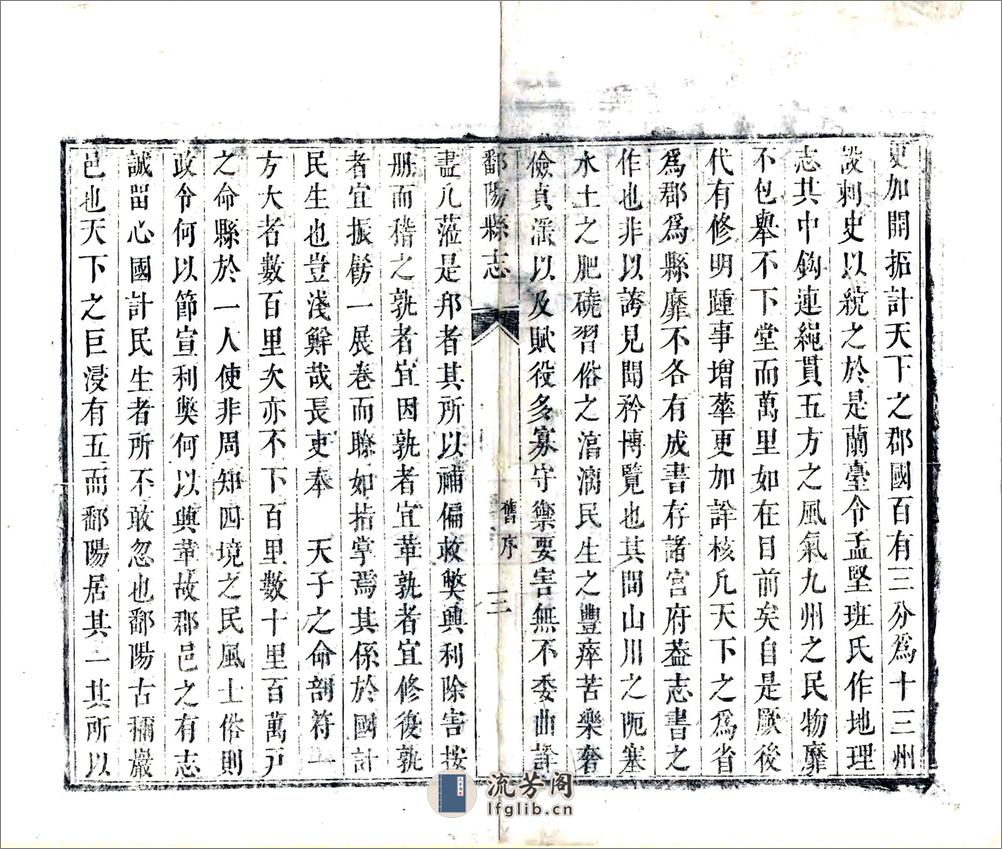 更加開拓計天下之郡國百有三分爲十三州
設刺史以統之於是蘭臺令孟堅班氏作地理
志其中鈎連繩貫五方之風氣九州之民物靡
不包舉不下堂而萬里如在目前矣自是厥後
代有修明踵事增華更加詳核凡天下之爲省
爲郡爲縣靡不各有成書存諸宮府葢志書之
作也非以誇見聞矜博覽也其間山川之阨塞
水土之肥磽習俗之淳漓民生之豐瘁苦樂奢
儉貞滛以及賦役多寡守禦要害無不委曲詳
鄱陽縣志
舊序
三
盡凡蒞是邦者其所以補偏救獘興利除害按
册而稽之孰者宜因孰者宜革孰者宜修復孰
者宜振飭一展卷而瞭如指掌焉其係於國計
民生也豈淺鮮哉長吏奉 天子之命剖符一
方大者數百里次亦不下百里數十里百萬戸
之命縣於一人使非周知四境之民風土俗則
政令何以節宣利獘何以興革故郡邑之有志
誠留心國計民生者所不敢忽也鄱陽古稱巖
邑也天下之巨浸有五而鄱陽居其一其所以
流芳阁
lfglib.cn